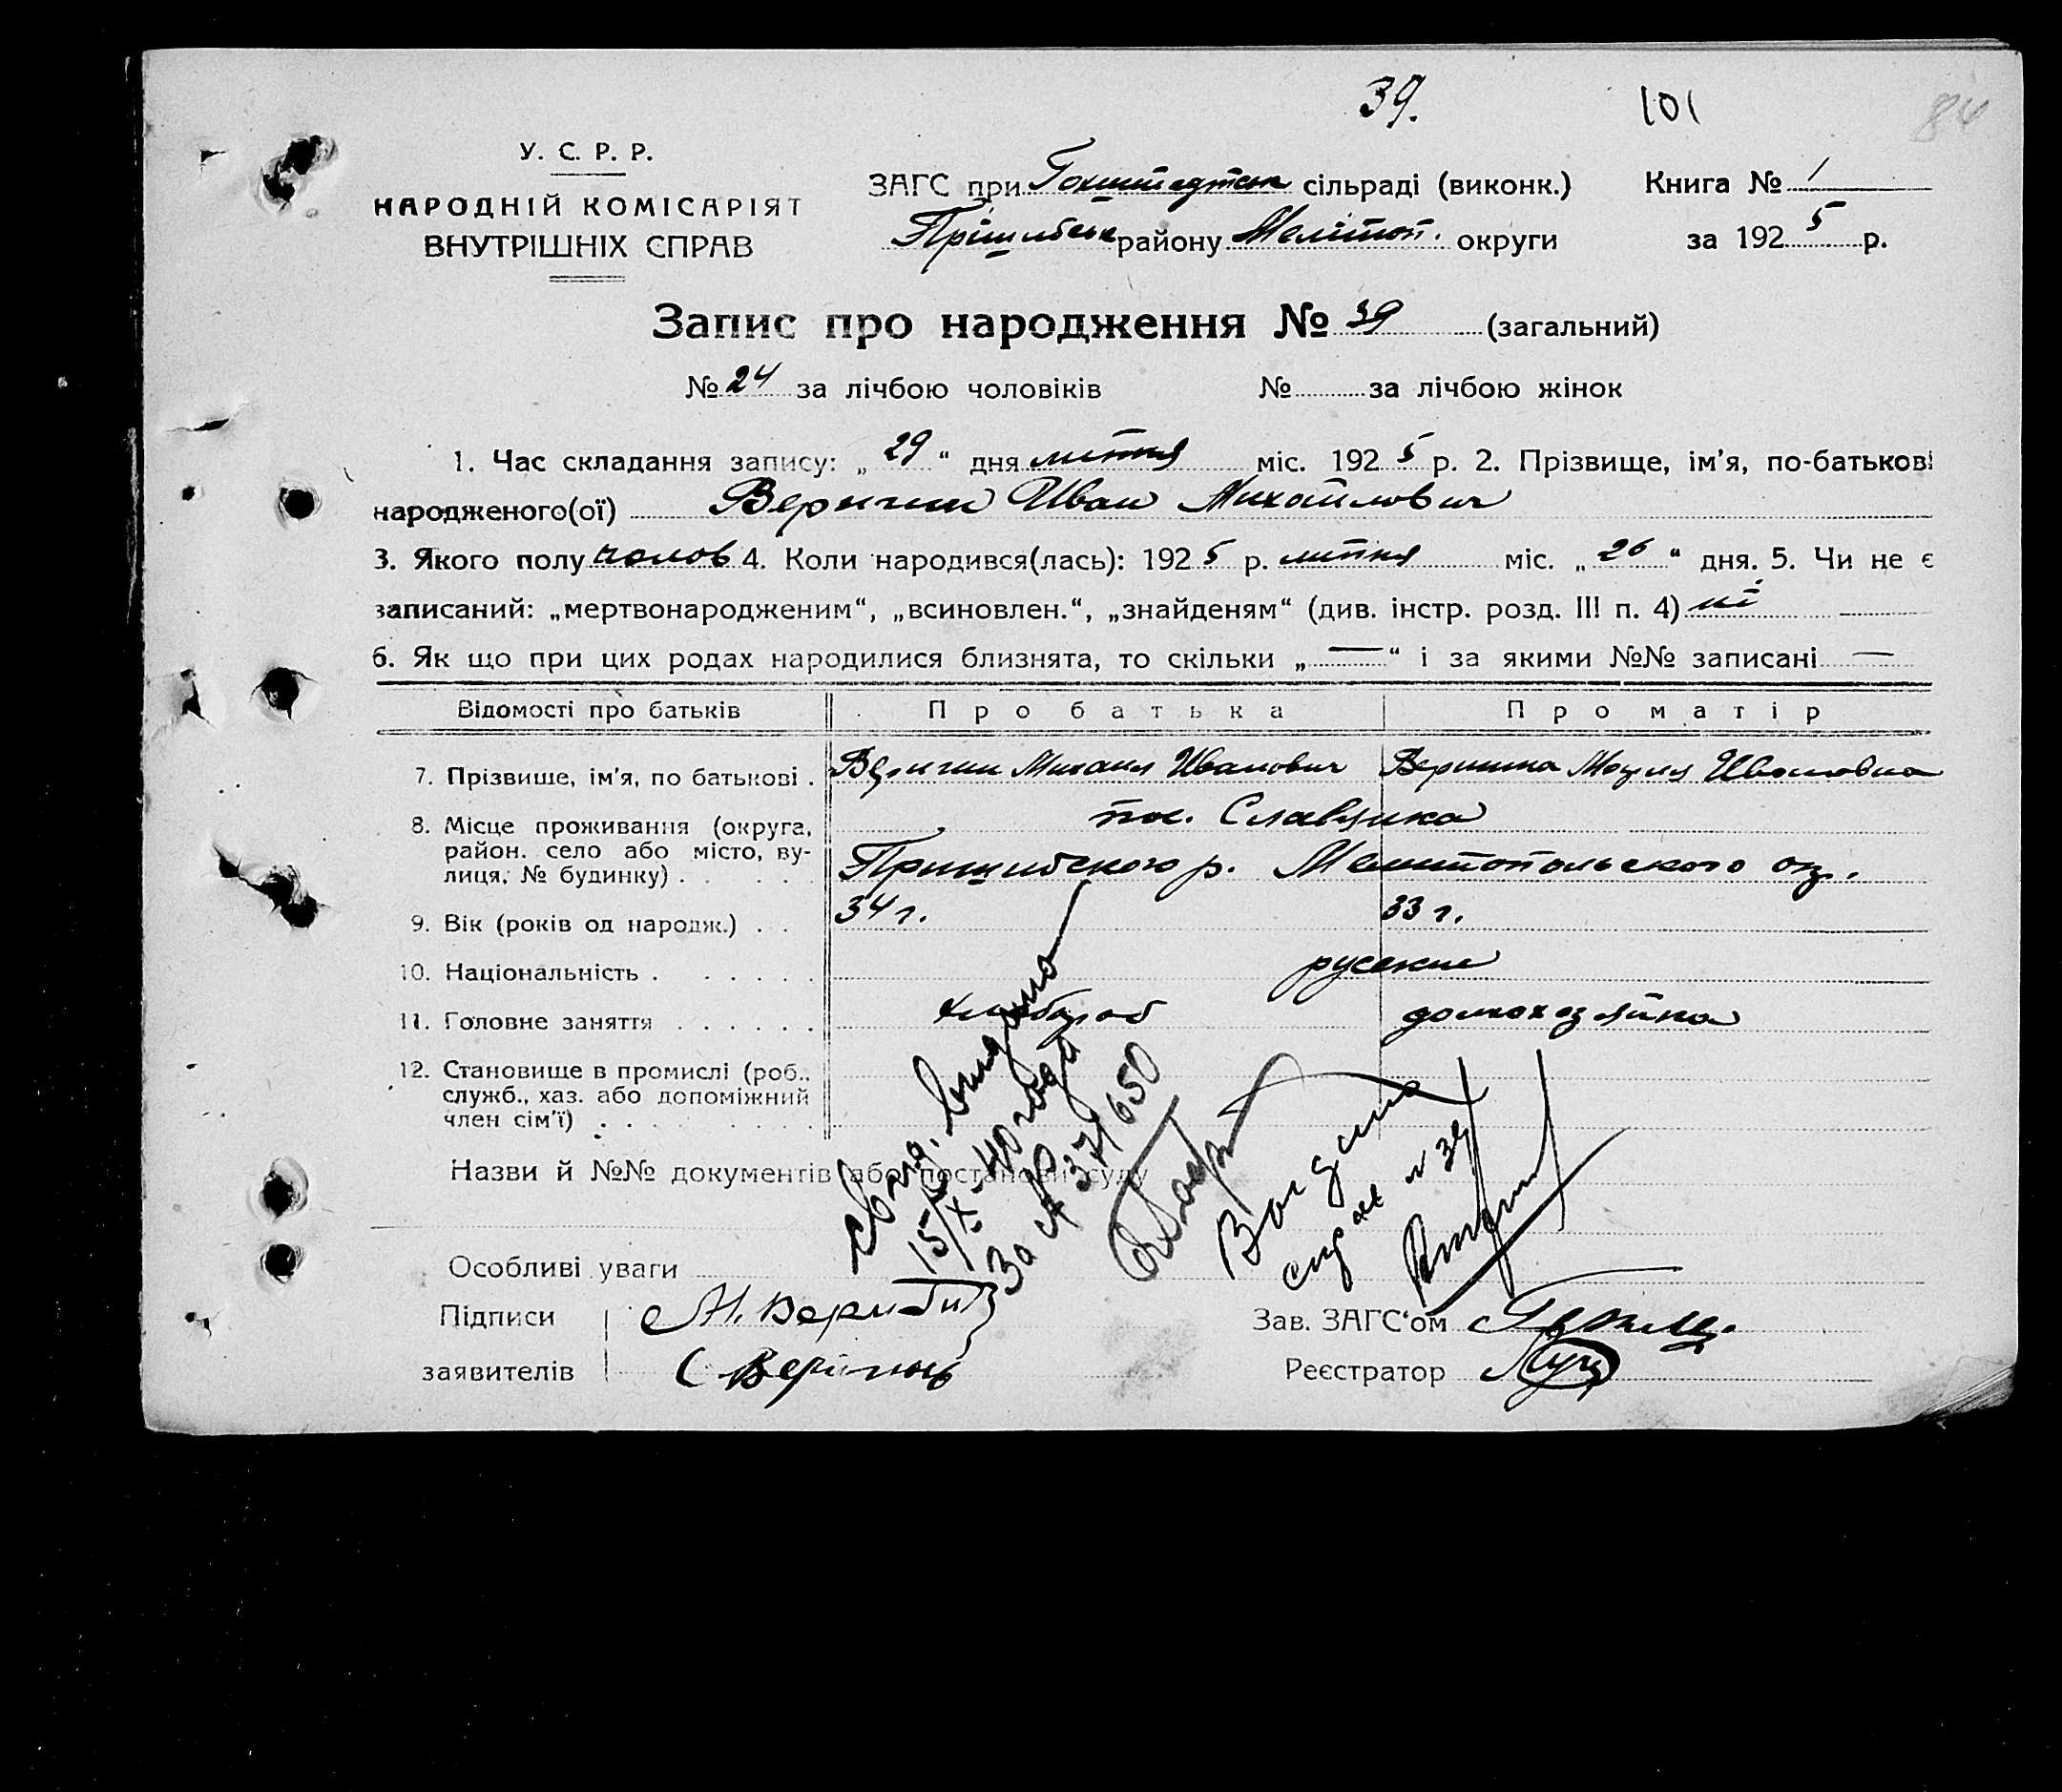 39. 101 84
У. С. Р. Р.
НАРОДНІЙ КОМІСАРІЯТ
ВНУТРІШНІХ СПРАВ
ЗАГС при Гохштедтськ сільраді (виконк.) Книга № 1
Прішибськ району Меліtoп. округи за 1925 р.
Запис про народження № 39 (загальний)
№ 24 за лічбою чоловіків № за лічбою жінок
1. Час складання запису: „ 29 “ дня липня міс. 1925 р. 2. Прізвище, ім’я, по-батькові
народженого(ої) Веригин Иван Михайлович
3. Якого полу чолов 4. Коли народився(лась): 1925 р. липня міс. „ 26 “ дня. 5. Чи не є
записаний: „мертвонародженим“, „всиновлен.“, „знайденям“ (див. інстр. розд. III п. 4) ні
6. Як що при цих родах народилися близнята, то скільки „ — “ і за якими №№ записані —
Відомості про батьків Про батька Про матір
7. Прізвище, ім’я, по батькові . Веригин Михаил Иванович Веригина Мария Ивановна
8. Місце проживання (округа, район. село або місто, ву-
лиця, № будинку) . пос. Славянка
Пришибского р. Мелитопольского окр.
9. Вік (років од народж.) . . 34 г. 33 г.
10. Національність . русские
11. Головне заняття хлебороб домохозяйка
12. Становище в промислі (роб.,
служб., хаз. або допоміжний
член сім’ї)
Назви й №№ документів або постанови суду
Свид. выдано
15/X-40 года
За № 371650
Выдана
справ № 39
Особливі уваги
Підписи
заявителів
Зав. ЗАГС‘ом
Реєстратор